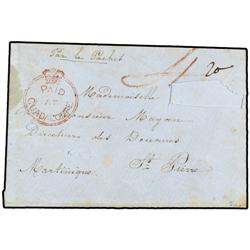 Par le Packet
20
PAID
AT
GUADALOUPE
Mademoiselle
Monsieur Mayan
Directeur des Douanes
St. Pierre
Martinique